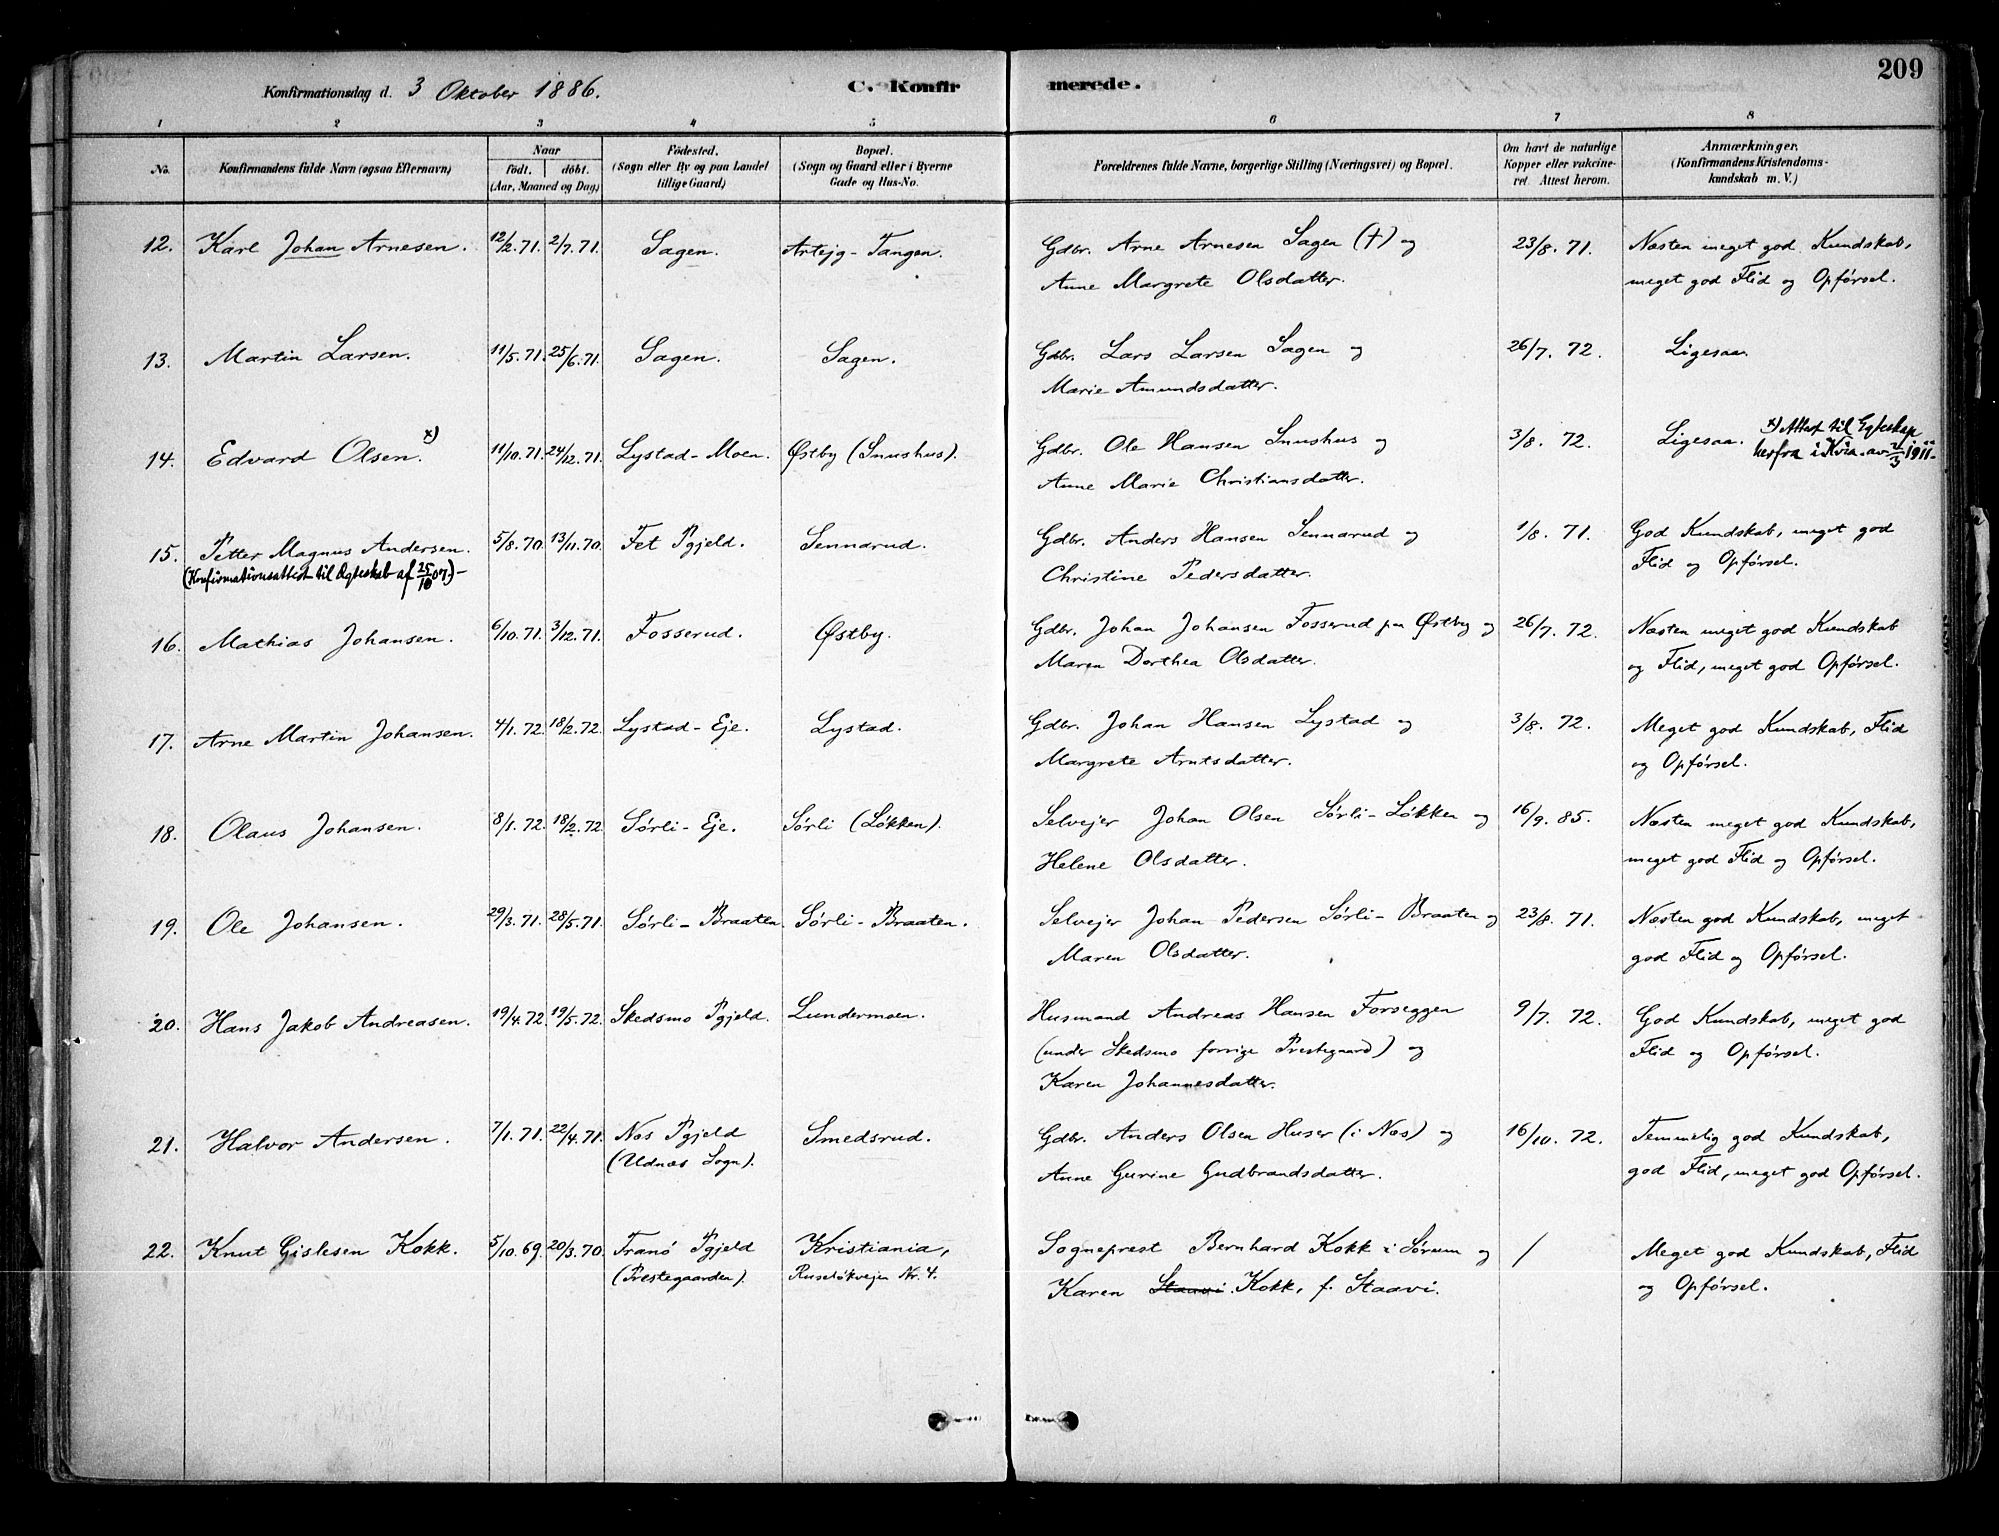 209
Konfirmationsdag d. 3 Oktober 1886. C. Konfirmerede.
1 2 3 4 5 6 7 8
No. Konfirmandens fulde Navn (ogsaa Efternavn) Naar födt. döbt. (Aar, Maaned og Dag) Födested. (Sogn eller By og paa Landet tillige Gaard) Bopæl. (Sogn og Gaard eller i Byerne Gade og Hus-No. Forældrenes fulde Navne, borgerlige Stilling (Næringsvei) og Bopæl. Om havt de naturlige Kopper eller vakcineret. Attest herom. Anmærkninger. (Konfirmandens Kristendomskundskab m. V.)
12. Karl Johan Arnesen. 12/2.71. 2/7.71. Sagen. Artejg-Tangen. Gdbr. Arne Arnesen Sagen (†) og 23/8. 71. Næsten meget god Kundskab,
Anne Margrete Olsdatter. meget god Flid og Opførsel.
13. Martin Larsen. 11/5.71. 25/6.71. Sagen. Sagen. Gdbr. Lars Larsen Sagen og 26/7. 72. Ligesaa.
Marie Amundsdatter.
14. Edvard Olsen. x) 11/10.71. 24/12.71. Lystad-Moen. Østby (Snushus). Gdbr. Ole Hansen Snushus og 3/8. 72. Ligesaa. x) Attest til Egteskap
Anne Marie Christiansdatter. herfra i av 1911-
15. Petter Magnus Andersen. 5/8.70. 13/11.70. Fet Pgjeld. Sennarud. Gdbr. Anders Hansen Sennarud og 1/8. 71. God Kundskab, meget god
(Konfirmationsattest til Ægteskab af 25/10 07.)- Christine Pedersdatter. Flid og Opførsel.
16. Mathias Johansen. 6/10.71. 3/12.71. Fosserud. Østby. Gdbr. Johan Johansen Fosserud pa Østby og 26/7. 72. Næsten meget god Kundskab
Maren Dorthea Olsdatter. og Flid, meget god Opførsel.
17. Arne Martin Johansen. 4/1.72. 18/2.72. Lystad-Eje. Lystad. Gdbr. Johan Hansen Lystad og 3/8. 72. Meget god Kundskab, Flid
Margrete Arntsdatter. og Opførsel.
18. Olaus Johansen. 8/1.72. 18/2.72. Sørli-Eje. Sørli (Løkken). Selvejer Johan Olsen Sørli-Løkken og 16/9. 85. Næsten meget god Kundskab,
Helene Olsdatter. meget god Flid og Opførsel.
19. Ole Johansen. 29/3.71. 28/5.71. Sørli-Braaten. Sørli-Braaten. Selvejer Johan Pedersen Sørli-Braaten og 23/8. 71. Næsten god Kundskab, meget
Maren Olsdatter. god Flid og Opførsel.
20. Hans Jakob Andreasen. 19/4.72. 19/5.72. Skedsmo Pgjeld. Lundermoen. Husmand Andreas Hansen Forseggen 9/7. 72. God Kundskab, meget god
(under Skedsmo forrige Prestegaard) og Flid og Opførsel.
Karen Johannesdatter.
21. Halvor Andersen. 7/1.71. 22/4.71. Nes Pgjeld Smedsrud. Gdbr. Anders Olsen Huser (i Nes) og 16/10. 72. Temmelig god Kundskab,
(Udnæs Sogn). Anne Gurine Gudbrandsdatter. god Flid, meget god Opførsel.
22. Knut Gislesen Kokk. 5/10.69. 20/3.70. Tranö Pgjeld Kristiania, Sogneprest Bernhard Kokk i Sørum og / Meget god Kundskab, Flid
(Prestegaarden). Ruseløkvejen Nr. 4. Karen Staavi Kokk, f. Staavi. og Opførsel.